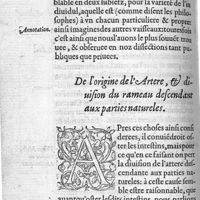 blable en deux subietz, pour la varieté de l'in
diuidu, auquel est (comme disent les philo-
sophes) à vn chacun particuliere & propre
Annotation. ainsi imagines des autres vaisseaux tousiours
c'est ainsi que nous l'auons le plus souuent
ueu, & obserué en noz dissections tant publi
ques que priuées.
De l'origine de l'Artere, & di-
uision du rameau descendant
aux parties natureles.
APres ces choses ainsi consi
derees, il conuiendroit os-
ter les intestins, mais pour
ce qu'en ce faisant on pert
la diuision de l'artere des-
cendante aux parties na-
tureles. Ceste cause me
semble estre raisonnable, que